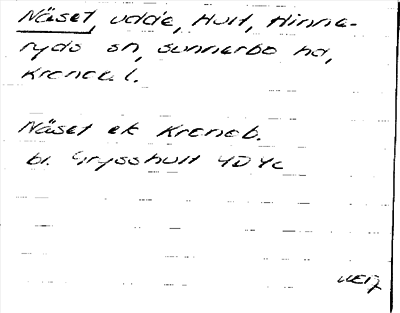 Näset, udde, Hult, Hinne-
ryds sn, Sunnerbo hd,
Kronob. l.
Näset ek Kronob.
bl. Grysshult 4D4c